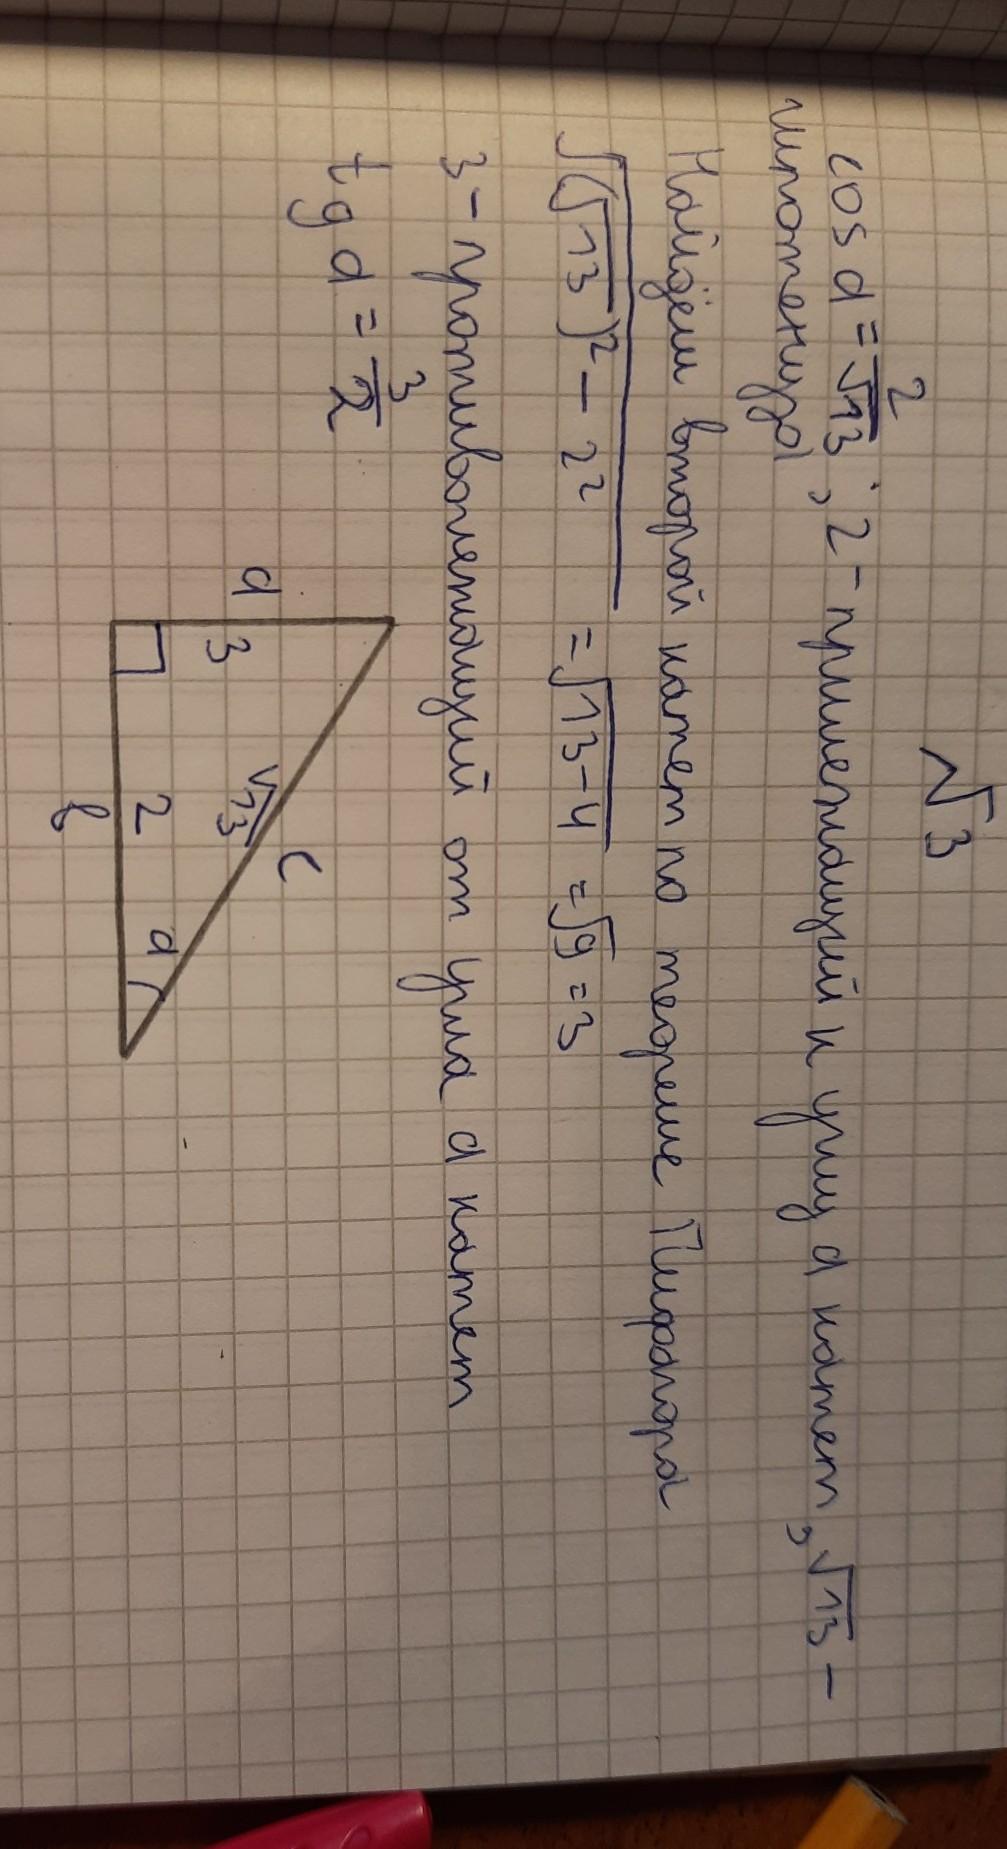 √3
cos α = 2/√13 ; 2 - прилежащий к углу α катет, √13 -
гипотенуза
Найдём второй катет по теореме Пифагора
√((√13)² - 2²) = √(13-4) = √9 = 3
3 - противолежащий от угла α катет
tg α = 3/2
a
3
√13
c
2
α
в